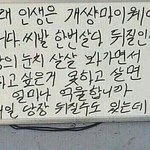 래 인생은 개썅마이웨이
니다. 씨발 한번살다 뒤질인
남의 눈치 살살 봐가면서
하고 싶은거 못하고 살면
얼마나 억울합니까
내일 당장 뒤질수도 있는데